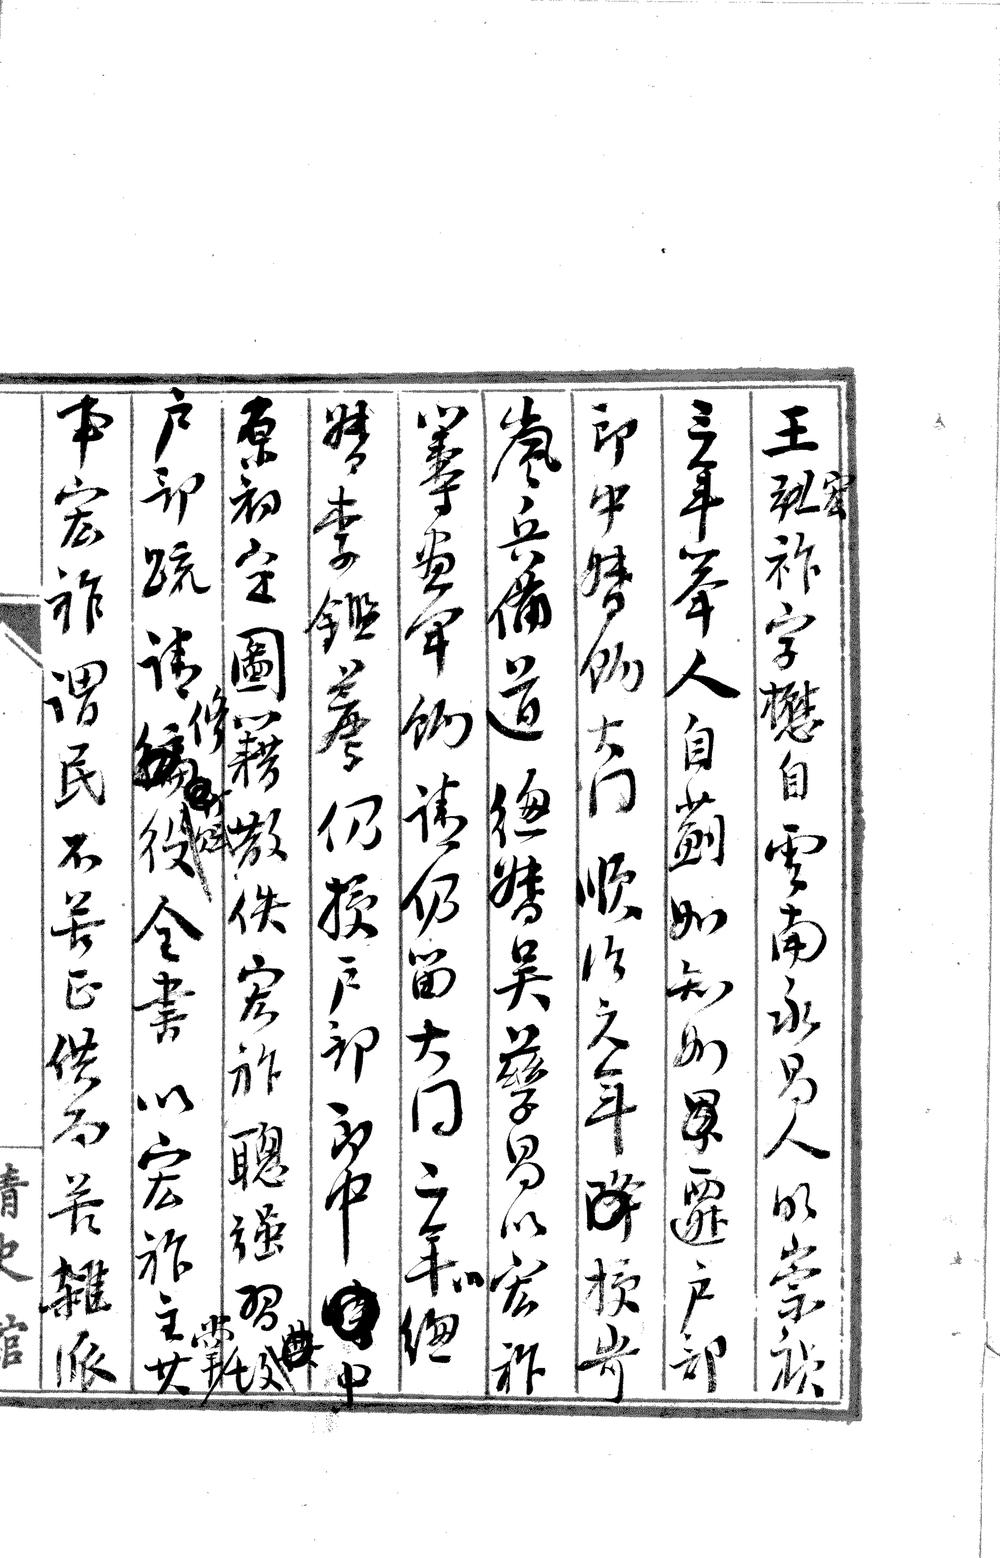 王宏祚字懋自雲南永昌人明崇禎
三年舉人自薊州知州累遷戶部
郎中督餉大同順治元年降授岢
嵐兵備道總督吳孳昌以宏祚
籌畫軍餉請仍留大同二年以總
督李鑑薦仍授戶部郎中中
原初定圖籍散佚宏祚聰強習掌故
戶部疏請修賦役全書以宏祚主其
事宏祚謂民不苦正供而苦雜派
清史館